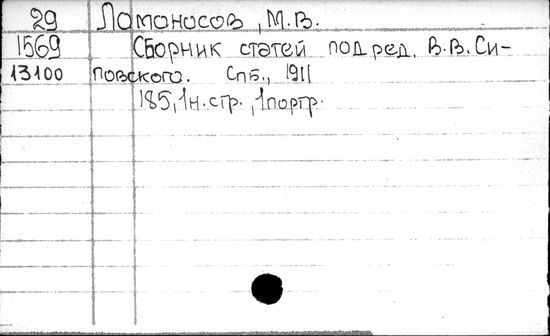 29 Ломоносов, М.В.
1569 Сборник статей под ред. В.В. Си-
13100 повского. Спб., 1911
185, 1 н. стр., 1 портр.